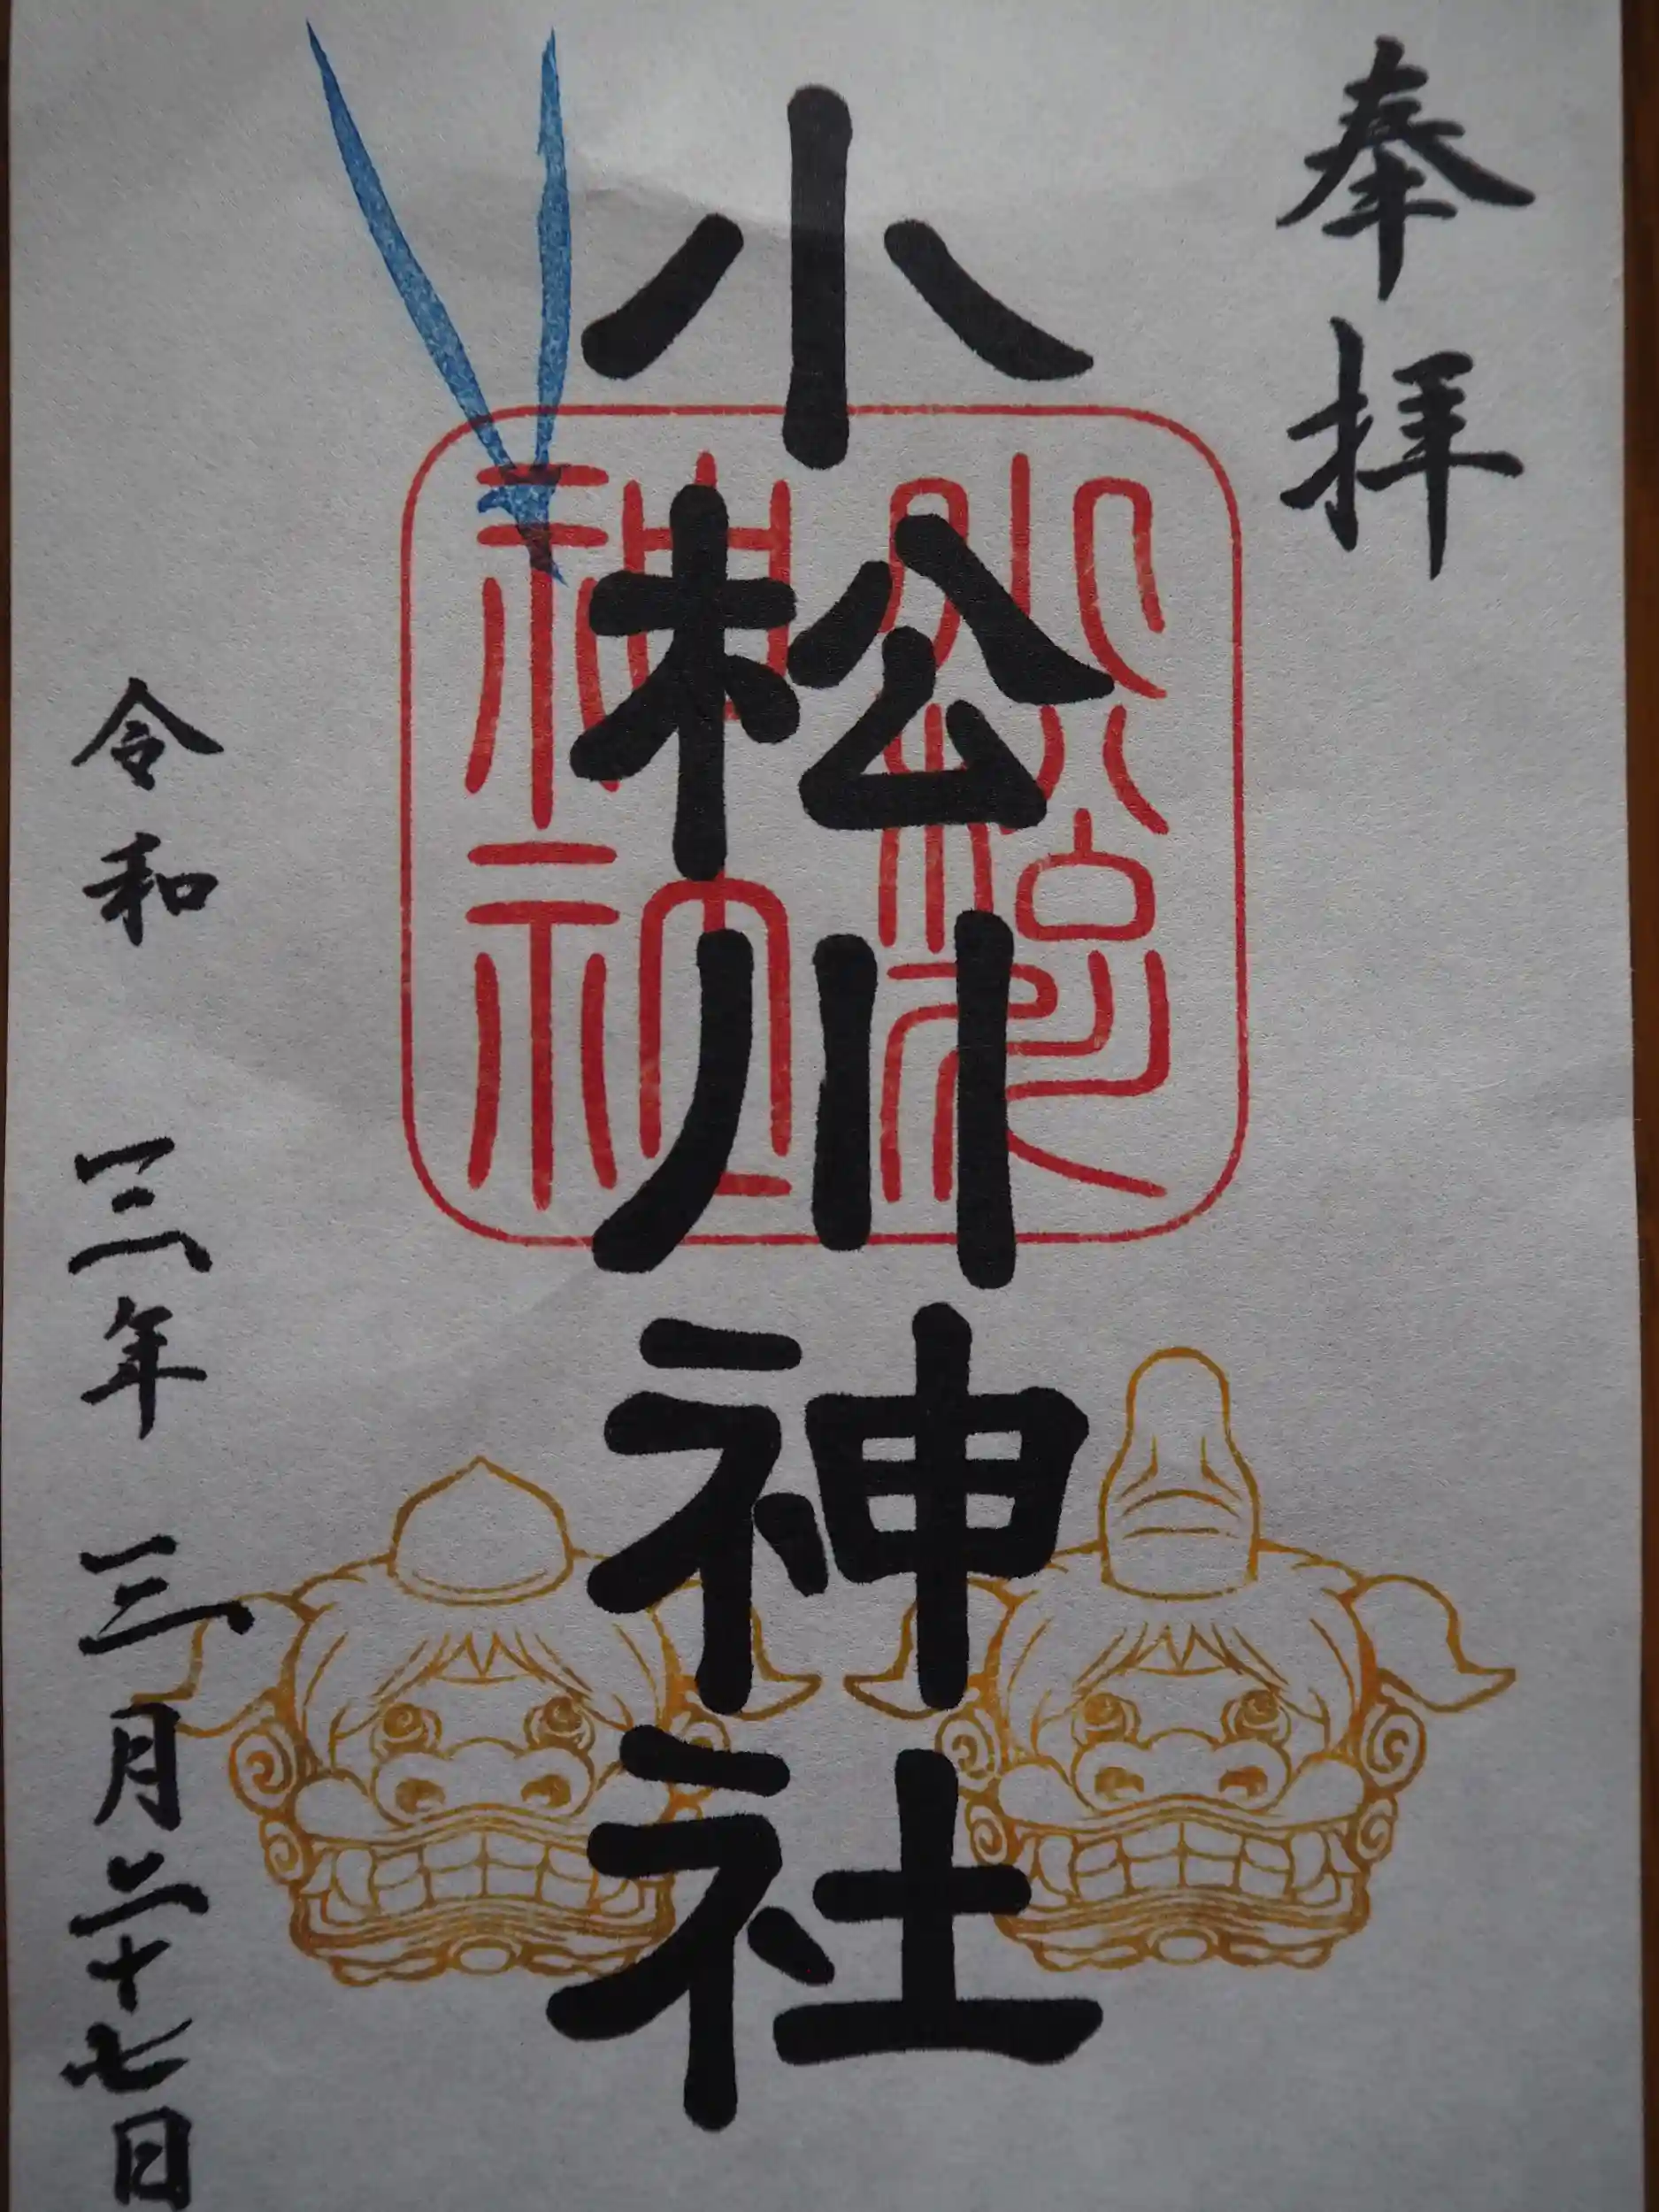 奉拝
小松川神社
令和 三年 三月二十七日